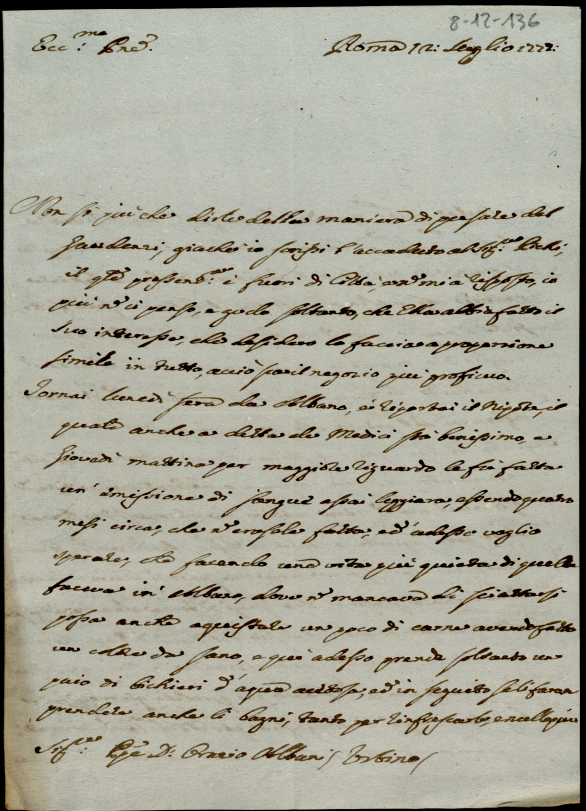 8-12-136
Ecc.ma Pne.
Roma 12: Luglio 1777:
Non so più che dirle della maniera di pensare del
Gaudenzi, giache io scrissi l'accaduto al Sig.re
il q.le è fuori di Città, e n. mi à risposto, io
più n. ci penso, e godo soltanto, che Ella abbia fatto il
suo interesse, che desidero lo faccia a proporzione
simile in tutto, acciò sia il negozio più proficuo.
Tornai lunedì sera da Albano, e riportai il Nipote, il
quale anche a detta de Medici stà benissimo, e
Giovedì mattina per maggiore riguardo le fù fatta
un' emissione di sangue assai leggiera, essendo quattro
mesi circa, che n. erasele fatta, ed adesso voglio
sperare, che facendo una vita più quieta di quella
faceva in Albano, dove n. mancava di sciattarsi
possa anche aquistare un poco di carne avendo fatto
un colore da sano, e quì adesso prende soltanto un
paio di bichieri d' aqua acetosa, ed in seguito se li faran
prendere anche li bagni, tanto per rinfrescarlo, e
Sig.re Ppe D. Orazio Albani / Urbino /